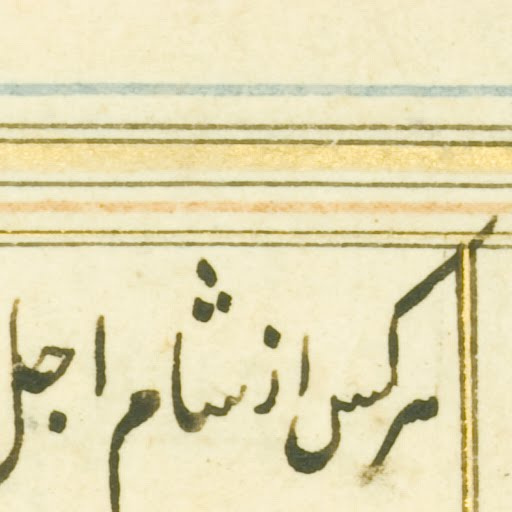 هر کس از شام اجل